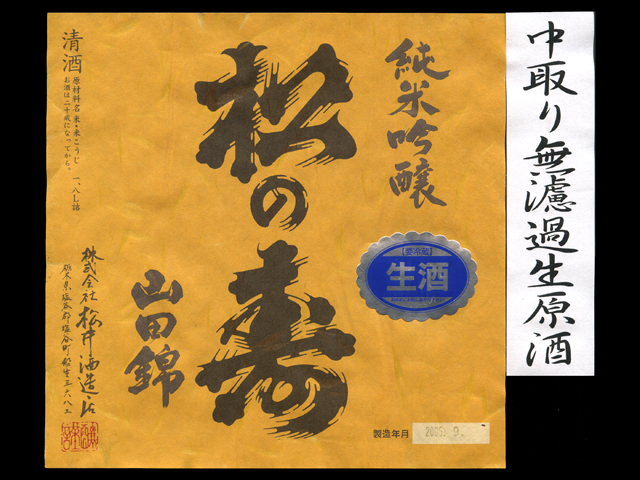 中取り無濾過生原酒
純米吟醸
松の寿
山田錦
清酒
原材料名 米・米こうじ 一、八L詰
お酒は二十歳になってから。
株式会社 松井酒造店
栃木県塩谷郡塩谷町船生三六八三
要冷蔵
生酒
製造年月